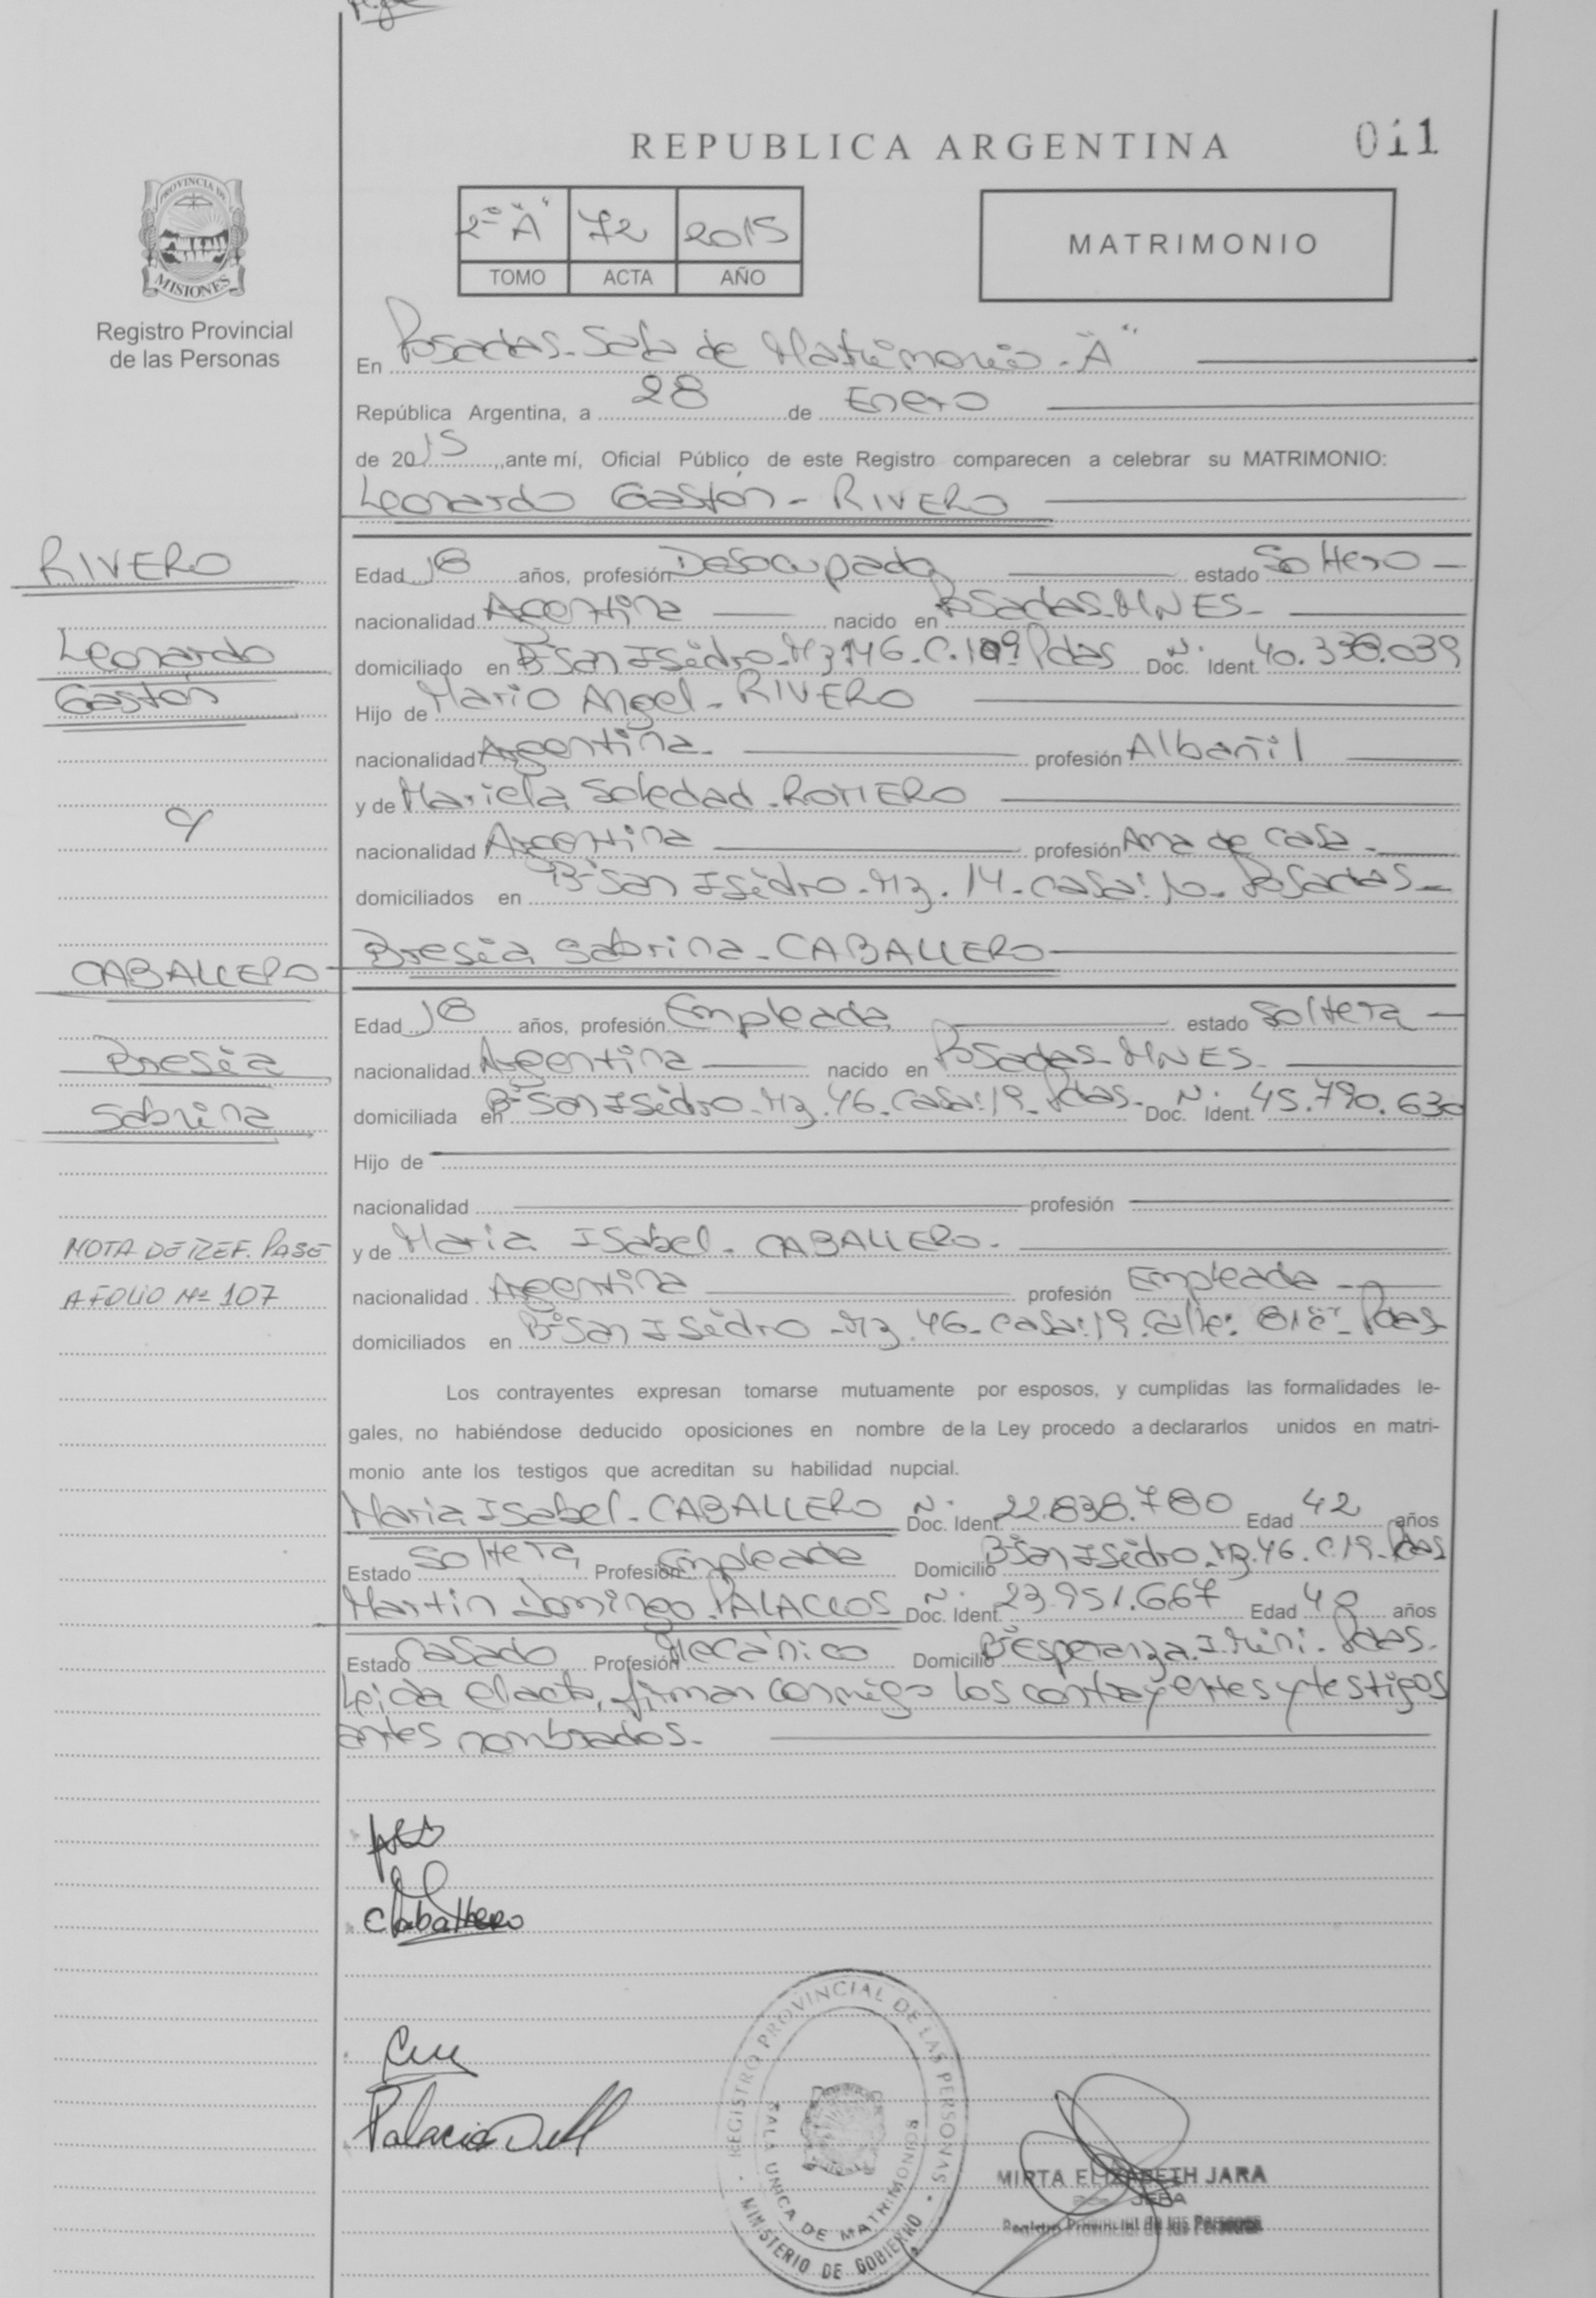 REPUBLICA ARGENTINA
011
PROVINCIA DE
MISIONES
Registro Provincial
de las Personas
2º "A" 72 2015
TOMO ACTA AÑO
MATRIMONIO
En Posadas - Sala de Matrimonio - "A"
República Argentina, a 28 de Enero
de 2015, ante mí, Oficial Público de este Registro comparecen a celebrar su MATRIMONIO:
Leonardo Gastón - RIVERO
RIVERO
Leonardo
Gastón
Edad 18 años, profesión Desocupado estado Soltero
nacionalidad Argentina nacido en Posadas - MNES -
domiciliado en Bº San Isidro - Mz 146 - C. Pdas Doc. Ident. Nº 40.338.039
Hijo de Mario Angel - RIVERO
nacionalidad Argentina - profesión Albañil
y de Mariela Soledad - ROMERO
nacionalidad Argentina profesión Ama de Casa -
domiciliados en Bº San Isidro - Mz. 14 - Casa: 10 - Posadas -
c/
Bresia Sabrina - CABALLERO
CABALLERO
Bresia
Sabrina
Edad 18 años, profesión Empleada estado Soltera
nacionalidad Argentina nacido en Posadas - MNES -
domiciliada en Bº San Isidro - Mz. 46 - Casa: 19 - Pdas - Doc. Nº Ident. 45.790.630
Hijo de
nacionalidad profesión
y de Maria Isabel - CABALLERO -
nacionalidad Argentina profesión Empleada
domiciliados en Bº San Isidro - Mz. 46 - Casa: 19 - Calle: Pdas
NOTA DE REF. PASE
A FOLIO Nº 107
Los contrayentes expresan tomarse mutuamente por esposos, y cumplidas las formalidades le-
gales, no habiéndose deducido oposiciones en nombre de la Ley procedo a declararlos unidos en matri-
monio ante los testigos que acreditan su habilidad nupcial.
Maria Isabel - CABALLERO Doc. Ident. Nº 22.838.780 Edad 42 años
Estado Soltera Profesión Empleada Domicilio Bº San Isidro - Mz. 46 - C. 19 - Pdas
Martin Domingo - PALACIOS Doc. Ident. Nº 23.951.667 Edad 48 años
Estado Casado Profesión Mecánico Domicilio Bº Esperanza - I. Miní - Pdas.
Leída el acta, firman conmigo los contrayentes y testigos
antes nombrados.
Caballero
Palacio
REGISTRO PROVINCIAL DE LAS PERSONAS
SALA UNICA DE MATRIMONIOS
MINISTERIO DE GOBIERNO
MIRTA ELIZABETH JARA
JEFA
Registro Provincial de las Personas